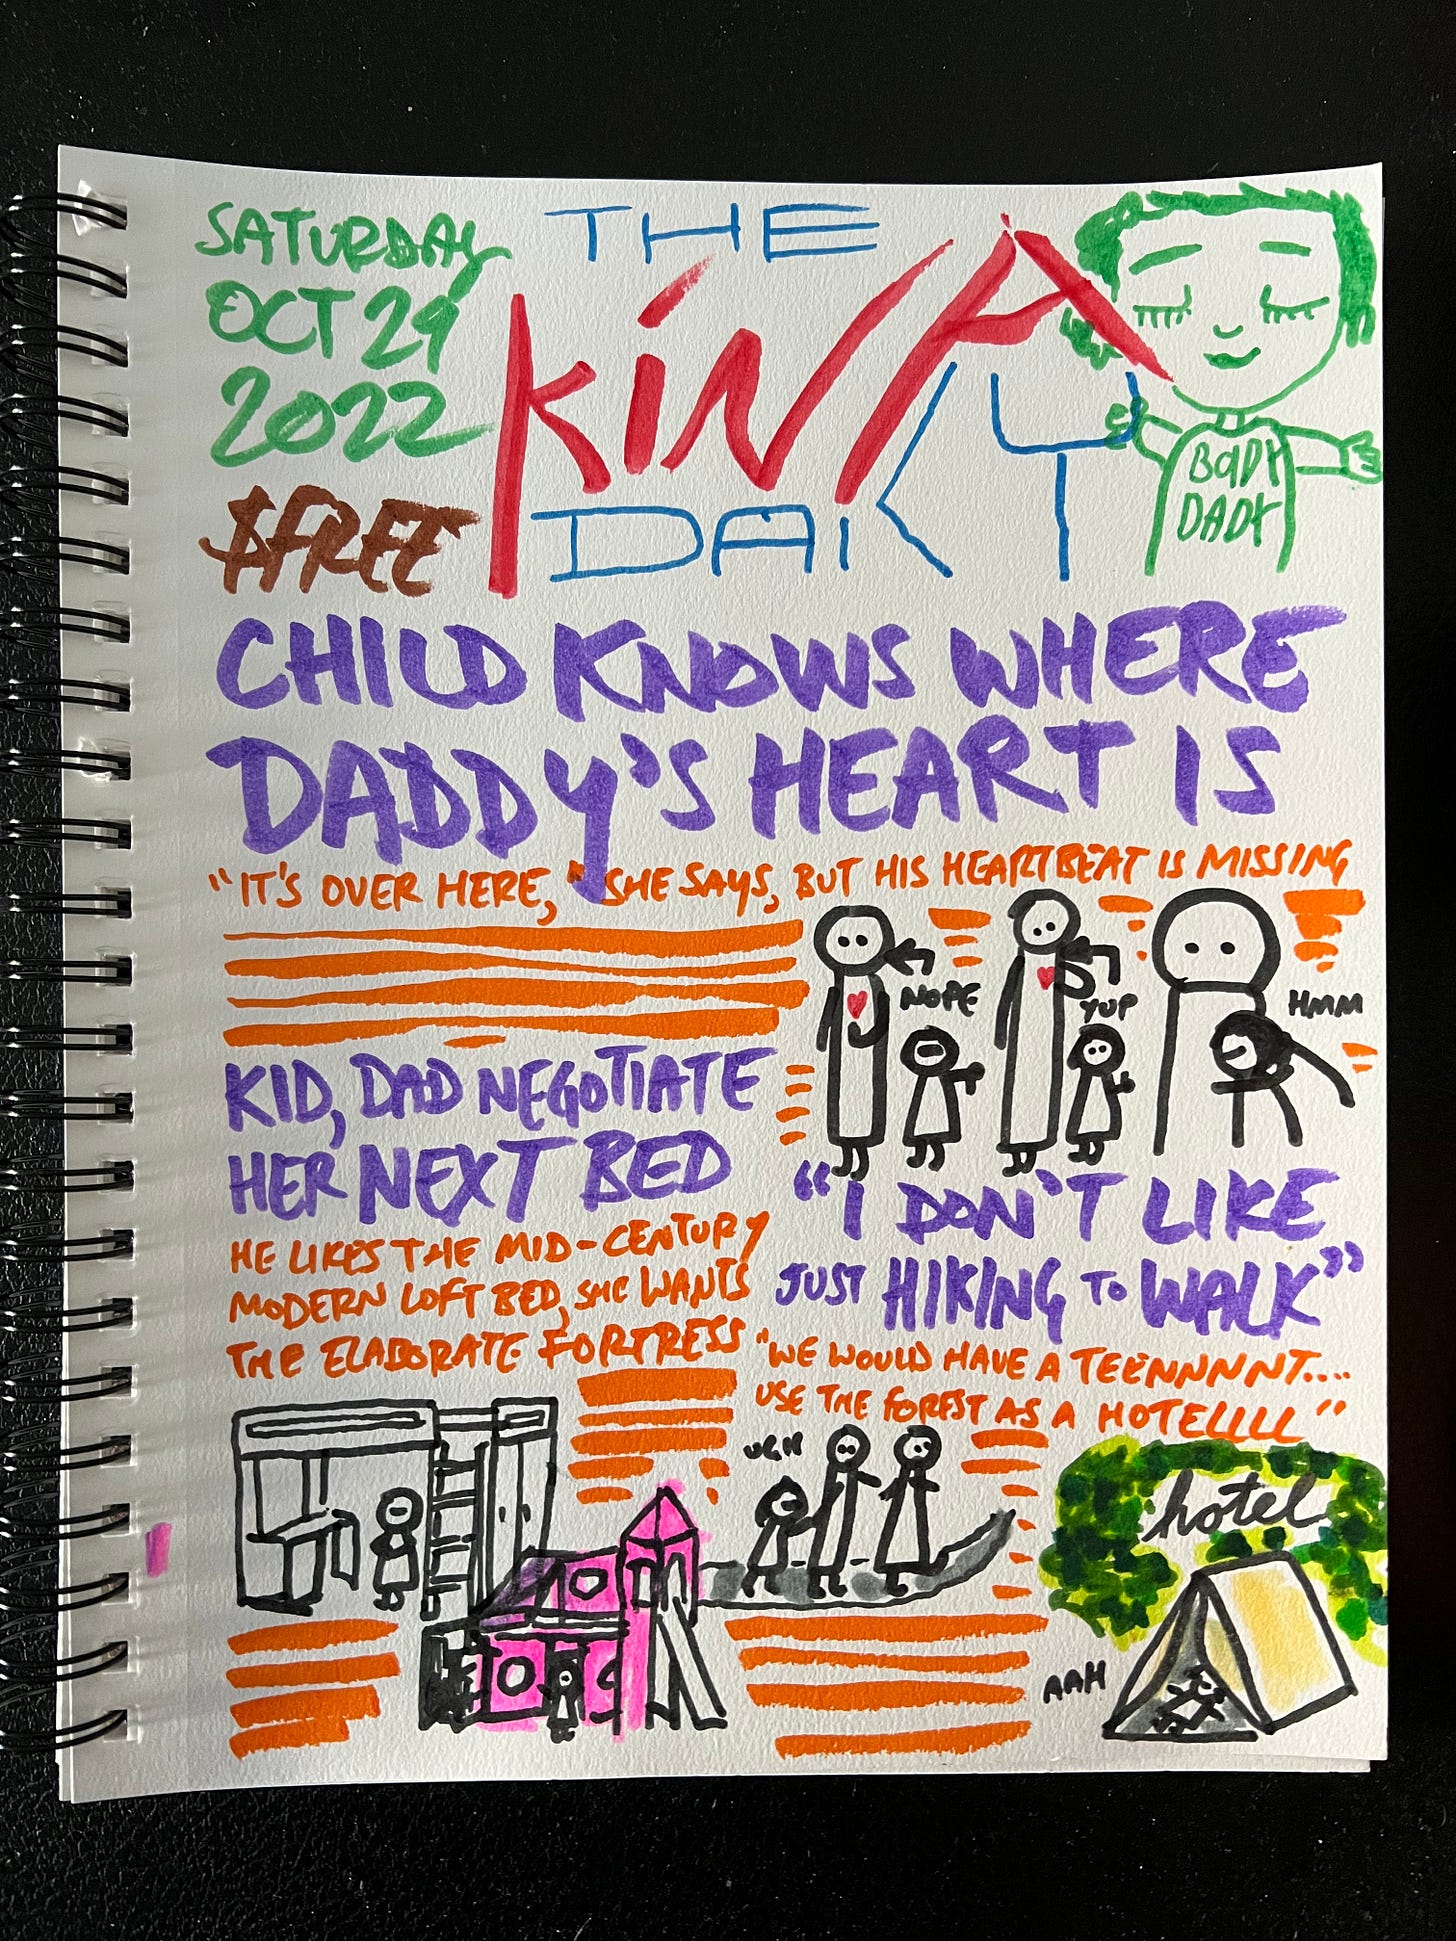 SATURDAY
OCT 29
2022
$FREE
THE
KiNA
DAiLY
BADY
DADY
CHILD KNOWS WHERE
DADDY'S HEART IS
"IT'S OVER HERE," SHE SAYS, BUT HIS HEARTBEAT IS MISSING
NOPE
YUP
HMM
KID, DAD NEGOTIATE
HER NEXT BED
HE LIKES THE MID-CENTURY
MODERN LOFT BED, SHE WANTS
THE ELABORATE FORTRESS
"I DON'T LIKE
JUST HIKING TO WALK"
"WE WOULD HAVE A TEENNNNT....
USE THE FOREST AS A HOTELLLL"
UGH
hotel
AAH